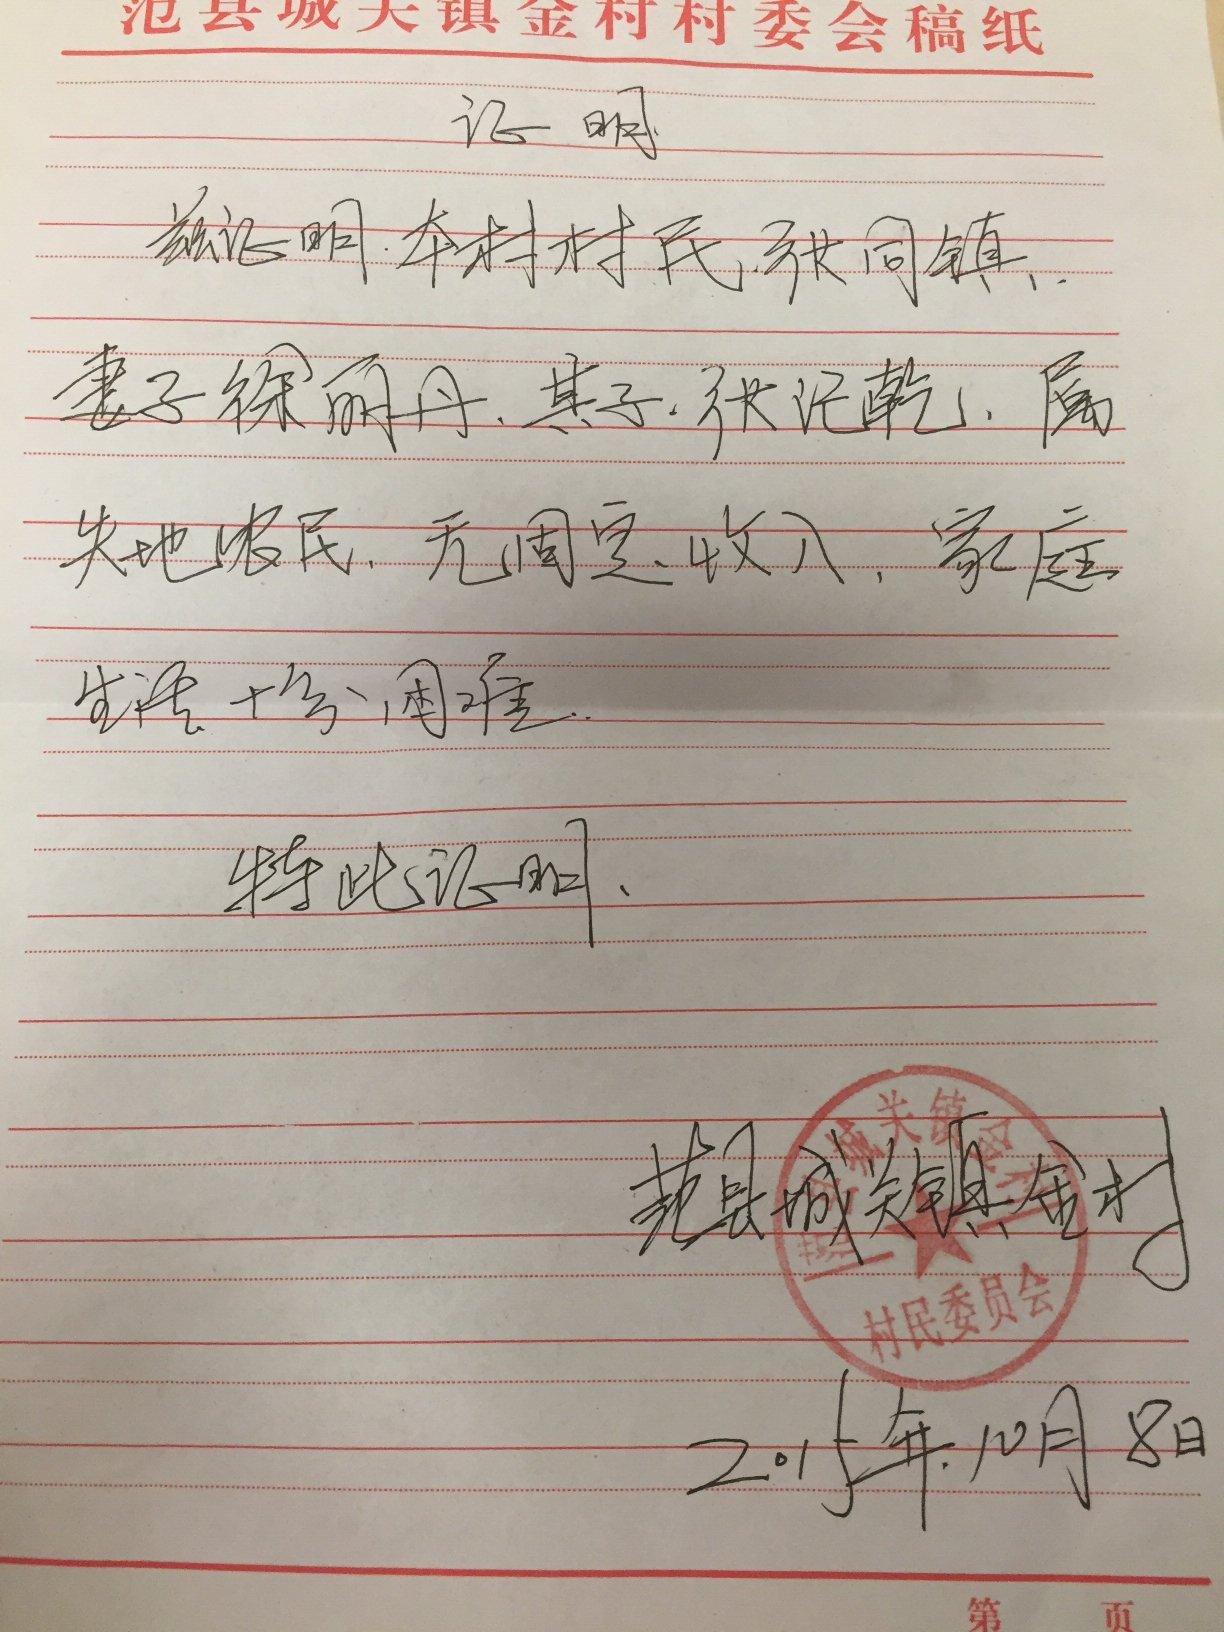 范县城关镇金村村委会稿纸
证明
兹证明本村村民、张同镇、
妻子徐丽丹、其子、张记乾、属
失地农民、无固定收入、家庭
生活十分困难.
特此证明、
范县城关镇金村
范县城关镇金村
村民委员会
2015年10月8日
第 页